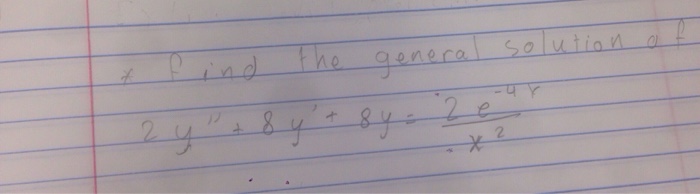 * find the general solution of
2y" + 8y' + 8y = 2e^-4r / x^2